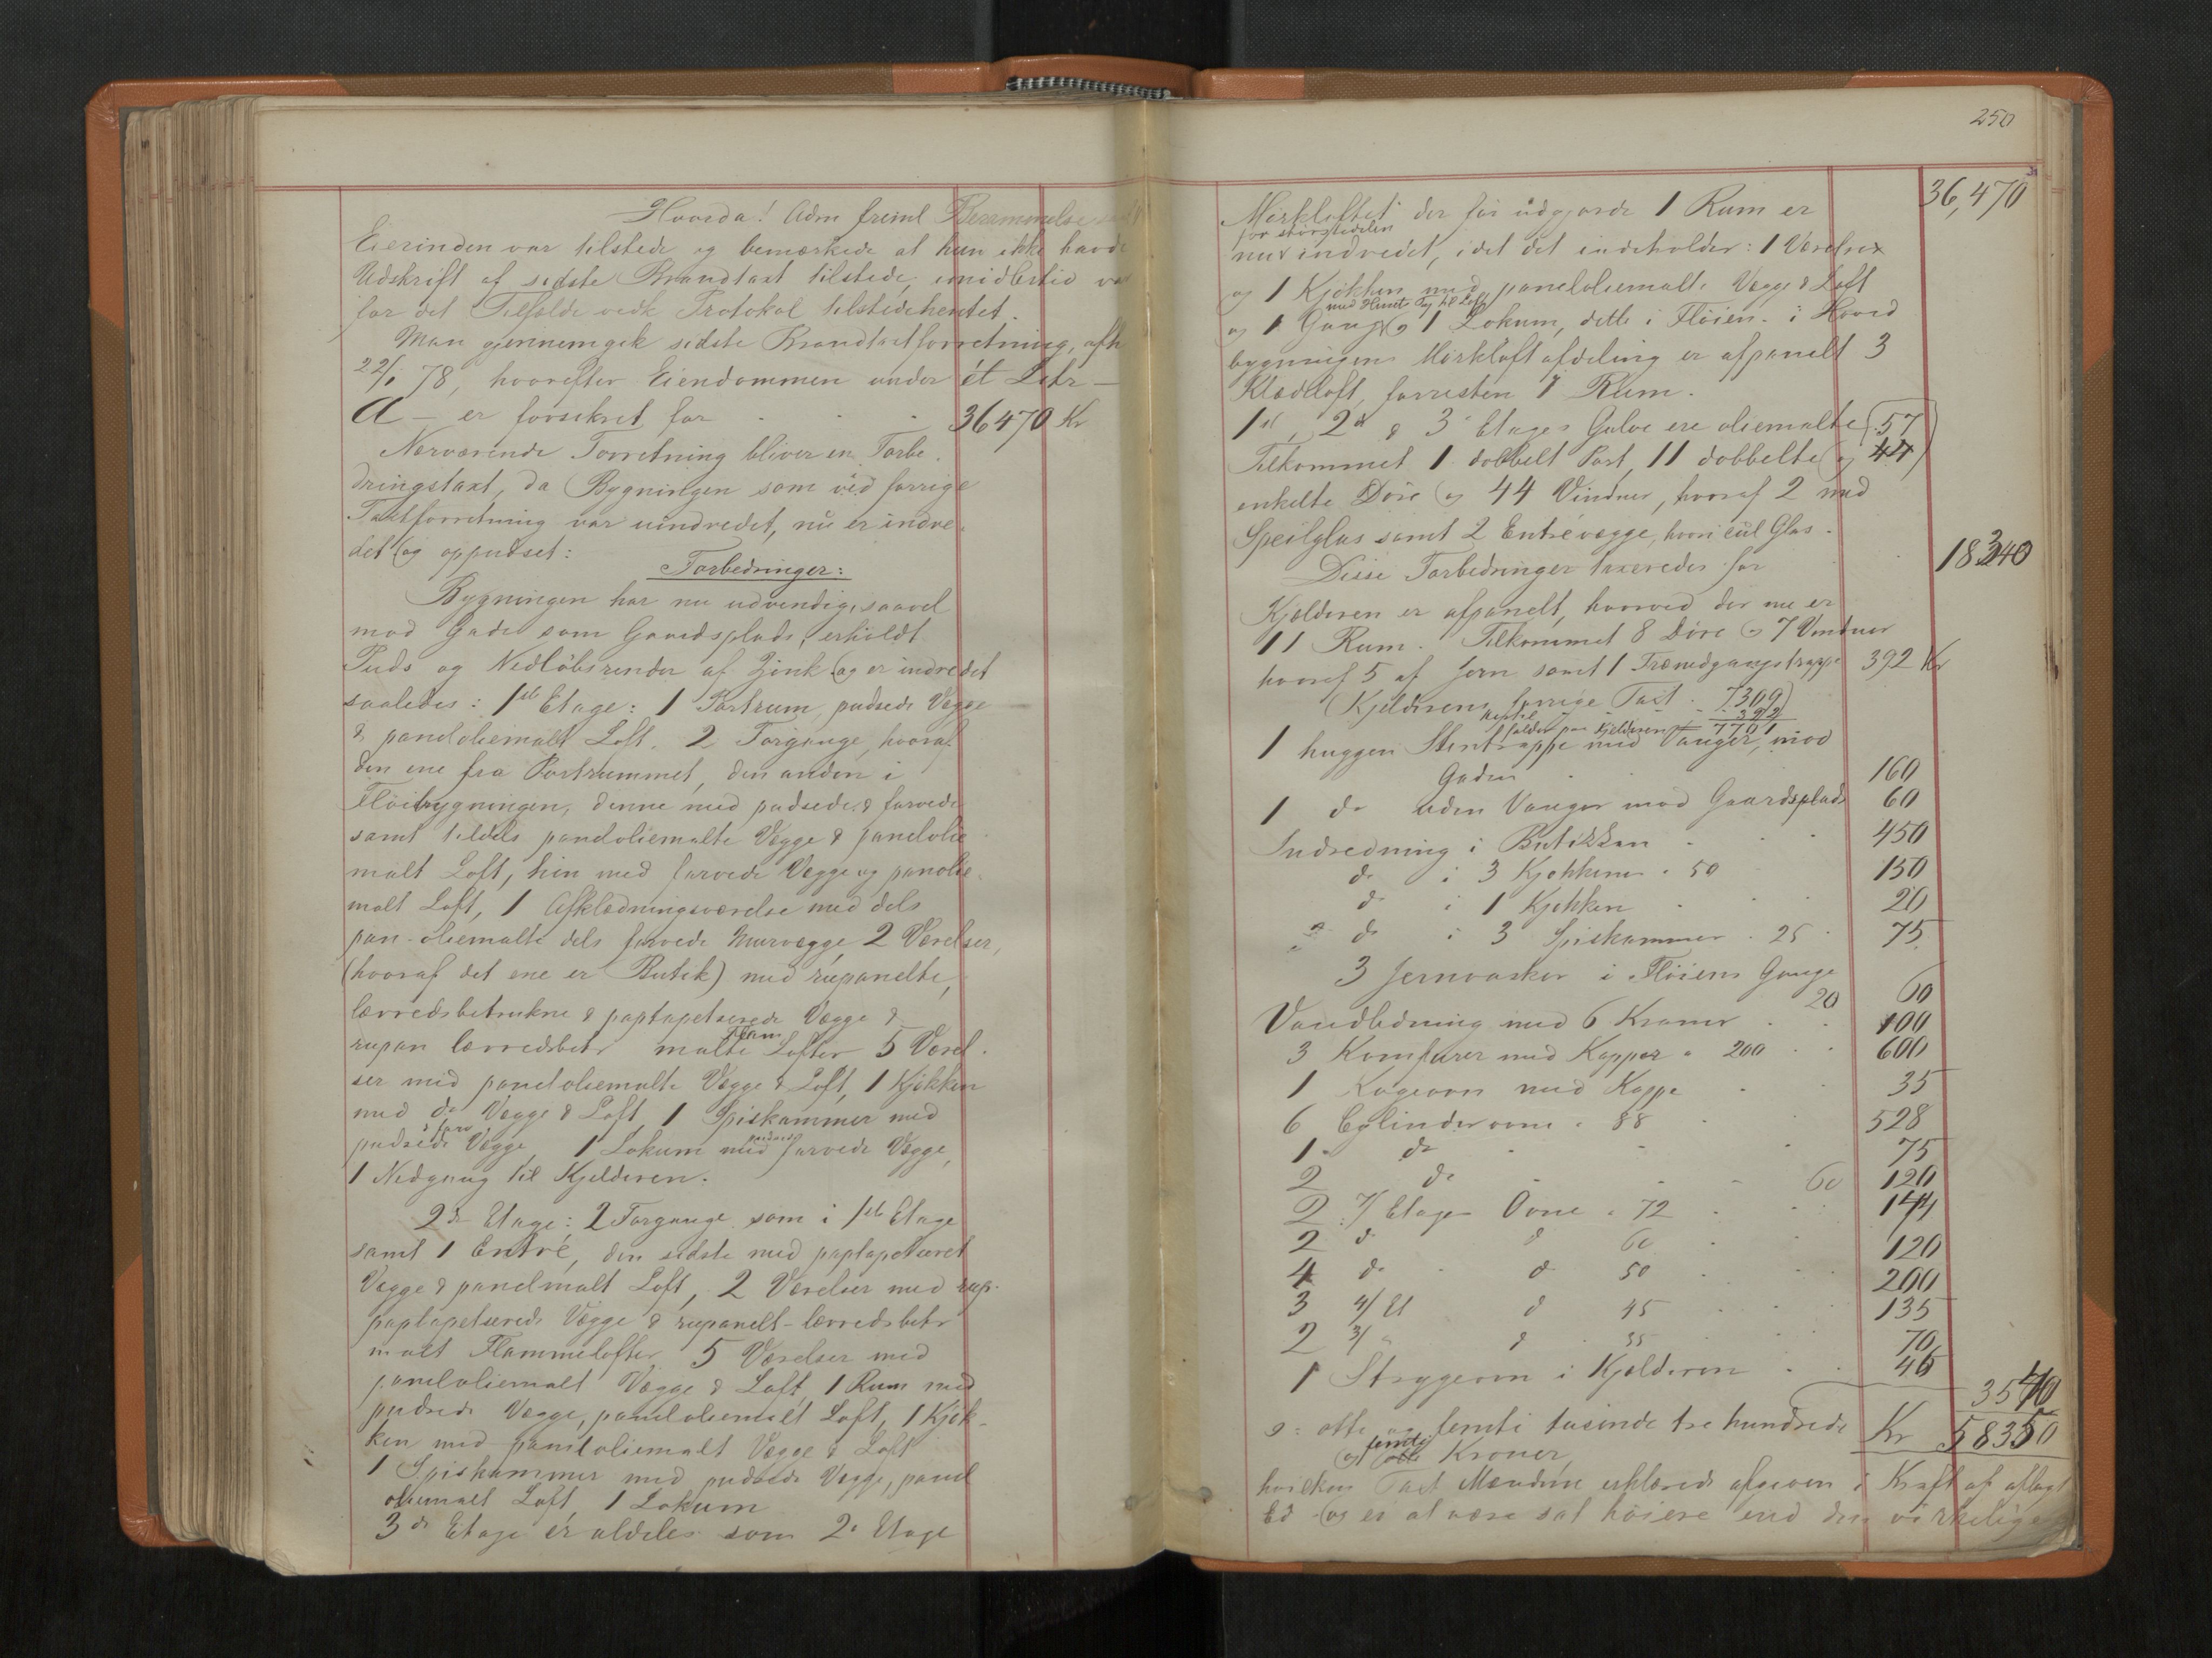 Hvorda! Adm freml Berammelse
Eierinden var tilstede og bemærkede at hun ikke havde
Udskrift af sidste Brandtaxt tilstede, imidlertid var
for det Tilfælde vedk Protokol tilstedehentet.
Man gjennemgik sidste Brandtaxtforretning, afh
22/1 78, hvorefter Eiendommen under ét Litr
A – er forsikret for . . . 36470 Kr
Nærværende Forretning bliver en Forbe
dringstaxt, da Bygningen som ved forrige
Taxtforretning var uindredet, nu er indre
det og oppudset:
Forbedringer:
Bygningen har nu udvendig, saavel
mod Gade som Gaardsplads, erholdt
Puds og Nedløbsrender af Zink og er indredet
saaledes: 1ste Etage: 1 Portrum, pudsede Vægge
& paneloliemalt Loft. 2 Forgange, hvoraf
den ene fra Portrummet, den anden i
Fløibygningen, denne med pudsede & farvede
samt tildels paneloliemalte Vægge & panelolie
malt Loft, hin med farvede Vægge og panolie
malt Loft, 1 Afklædningsværelse med dels
pan-oliemalte dels farvede Murvægge, 2 Værelser,
(hvoraf det ene er Butik) med rupanelte,
lærredsbetrukne & paptapetserede Vægge &
rupan lærredsbetr malte Flam Lofter 5 Værel
ser med paneloliemalte Vægge & Loft, 1 Kjøkken
med do Vægge & Loft, 1 Spiskammer med
pudsede & farv Vægge, 1 Lokum med pudsede farvede Vægge,
1 Nedgang til Kjelderen.
2de Etage: 2 Forgange som i 1ste Etage
samt 1 Entré, den sidste med paptapetseret
Vægge & panelmalt Loft, 2 Værelser med rup-
paptapetserede Vægge & rupanelt-lærredsbetr
malt Flammelofter 5 Værelser med
paneloliemalt Vægge & Loft, 1 Rum med
pudsede Vægge, paneloliemalt Loft, 1 Kjøk-
ken med paneloliemalt Vægge & Loft
1 Spiskammer med pudsede Vægge, panel
oliemalt Loft, 1 Lokum
3de Etage er aldeles som 2 Etage
250
36,470
Mørkloftet der før udgjorde 1 Rum er
for størstedelen
nu indredet, idet det indeholder: 1 Værelse
og 1 Kjøkken med paneloliemalte Vægge & Loft
og 1 Gang med Himl Tag til Loft og 1 Lokum, dette i Fløien. i Hoved
bygningens Mørkloftafdeling er afpanelt 3
Klædeloft, forresten 1 Rum.
1st, 2de & 3 Etages Gulve ere oliemalte 57
Tilkommet 1 dobbelt Port, 11 dobbelte og 44
enkelte Døre og 44 Vinduer, hvoraf 2 med
Speilglas samt 2 Entrévægge, hvori cul Glas.
Disse Forbedringer taxeredes for 18340
Kjælderen er afpanelt, hvorved der nu er
11 Rum. Tilkommet 8 Døre og 7 Vinduer
hvoraf 5 af Jern samt 1 Trænedgangstrappe 392 Kr
(Kjelderens forrige Taxt . 7309)
392
falder paa Kjelderen 7701
1 huggen Stentrappe med Vanger, mod
Gaden 160
1 do uden Vanger mod Gaardsplads 60
Indredning i Butikken . . 450
do i 3 Kjøkkener a 50 150
do i 1 Kjøkken . . 20
do i 3 Spiskammer a 25 75
3 Jernvasker i Fløiens Gange 20 60
Vandledning med 6 Kraner . . 100
3 Komfurer med Kapper a 200 . . 600
1 Kogeovn med Kappe . 35
6 Cylinderovne a 88 . 528
1 do 75
2 do 60 120
2 7/ Etages Ovne a 72 144
2 do d 60 120
4 do d 50 200
3 4/ Et d 45 135
2 3/ " d 35 70
1 Strygeovn i Kjælderen . . 46
3540
o: otte og femti tusinde tre hundrede Kr 58350
og femti Kroner,
hvilken Taxt Mændene erklærede afgiven i Kraft af aflagt
Ed og er at være sat høiere end den virkelige